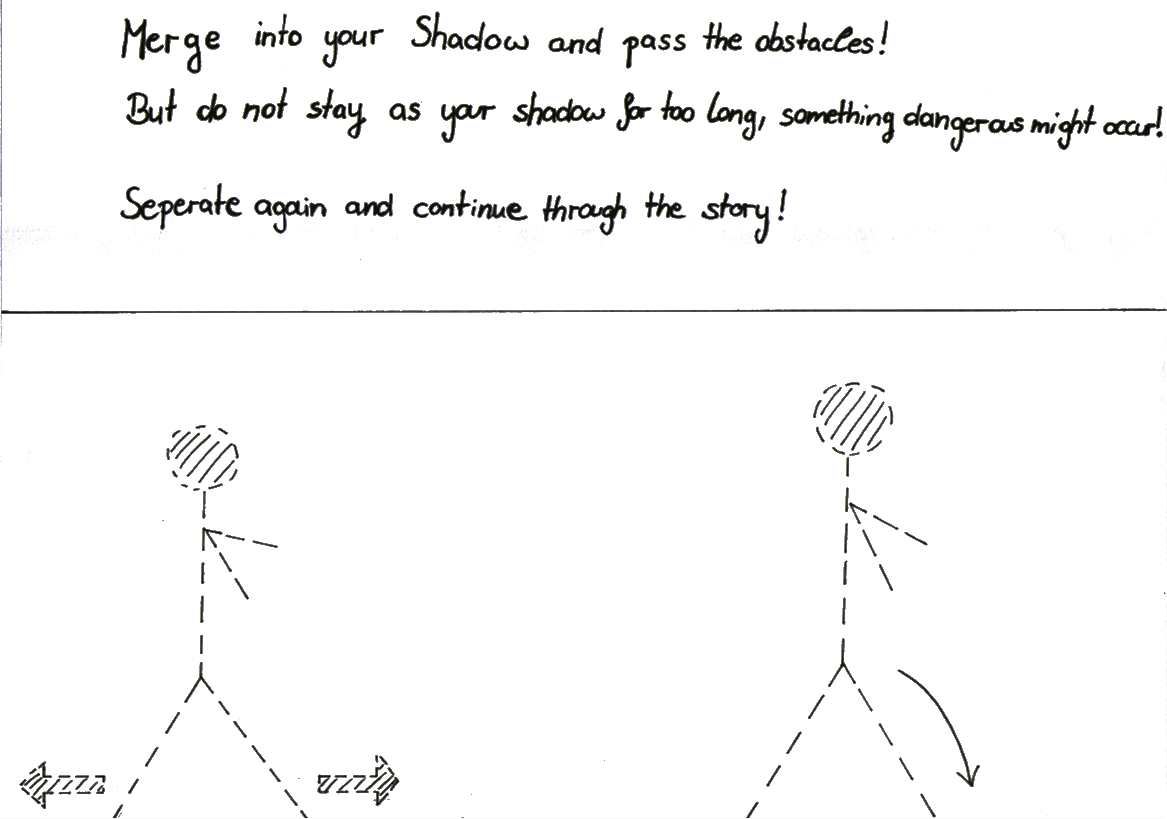 Merge into your Shadow and pass the obstacles!
But do not stay as your shadow for too long, something dangerous might occur!
Seperate again and continue through the story!